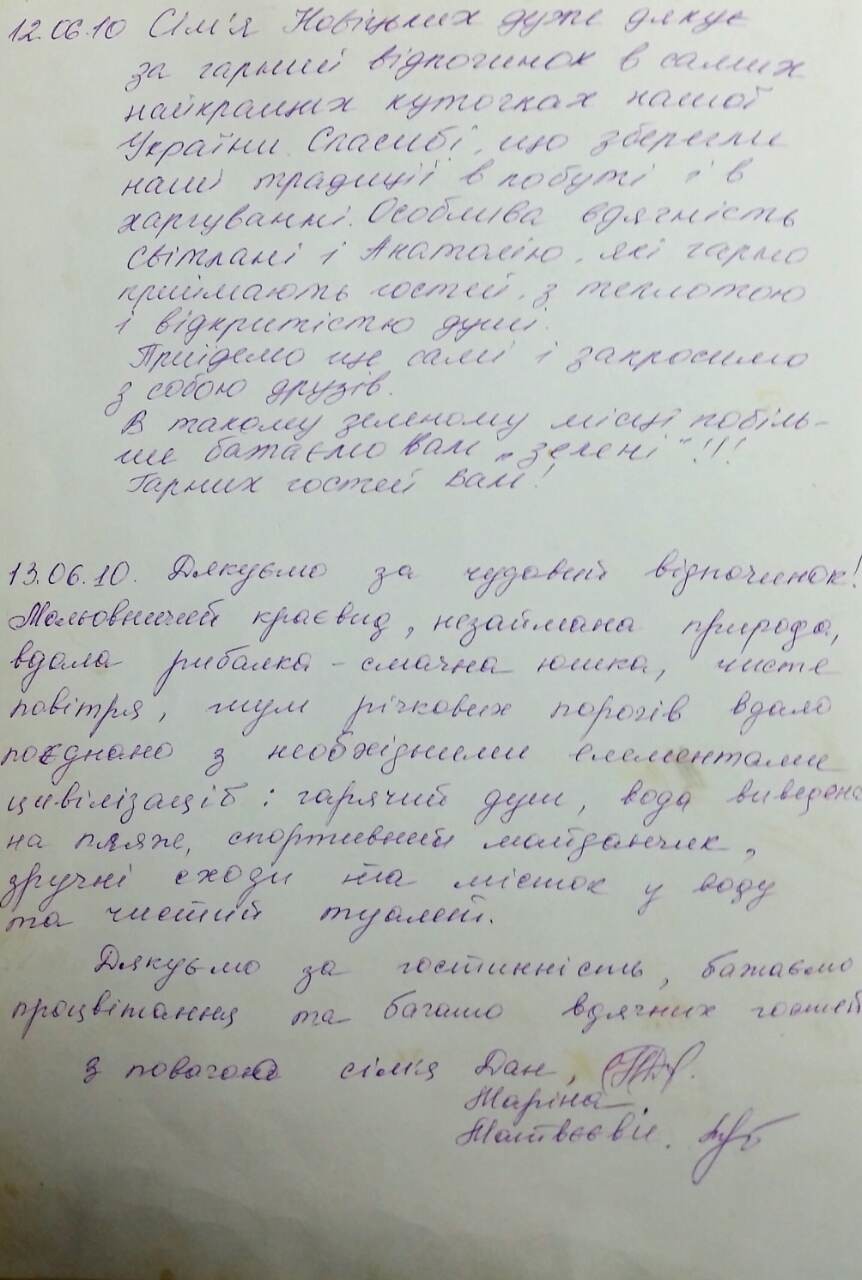 12.06.10 Сім'я Новіцьких дуже дякує
за гарний відпочинок в самих
найкращих куточках нашої
України. Спасибі, що зберегли
наші традиції в побуті і в
харчуванні. Особлива вдячність
Світлані і Анатолію, які гарно
приймають гостей, з теплотою
і відкритістю душі.
Прийдемо ще самі і запросимо
з собою друзів.
В такому зеленому місці побіль-
ше бажаємо Вам „зелені"!!!
Гарних гостей Вам!
13.06.10. Дякуємо за чудовий відпочинок!
Мальовничий краєвид, незаймана природа,
вдала рибалка - смачна юшка, чисте
повітря, шум річкових порогів вдало
поєднано з необхідними елементами
цивілізації: гарячий душ, вода виведена
на пляж, спортивний майданчик,
зручні сходи та місток у воду
та чистий туалет.
Дякуємо за гостинність, бажаємо
процвітання та багато вдячних гостей
З повагою сімія Дан,
Маріна
Матвєєви.